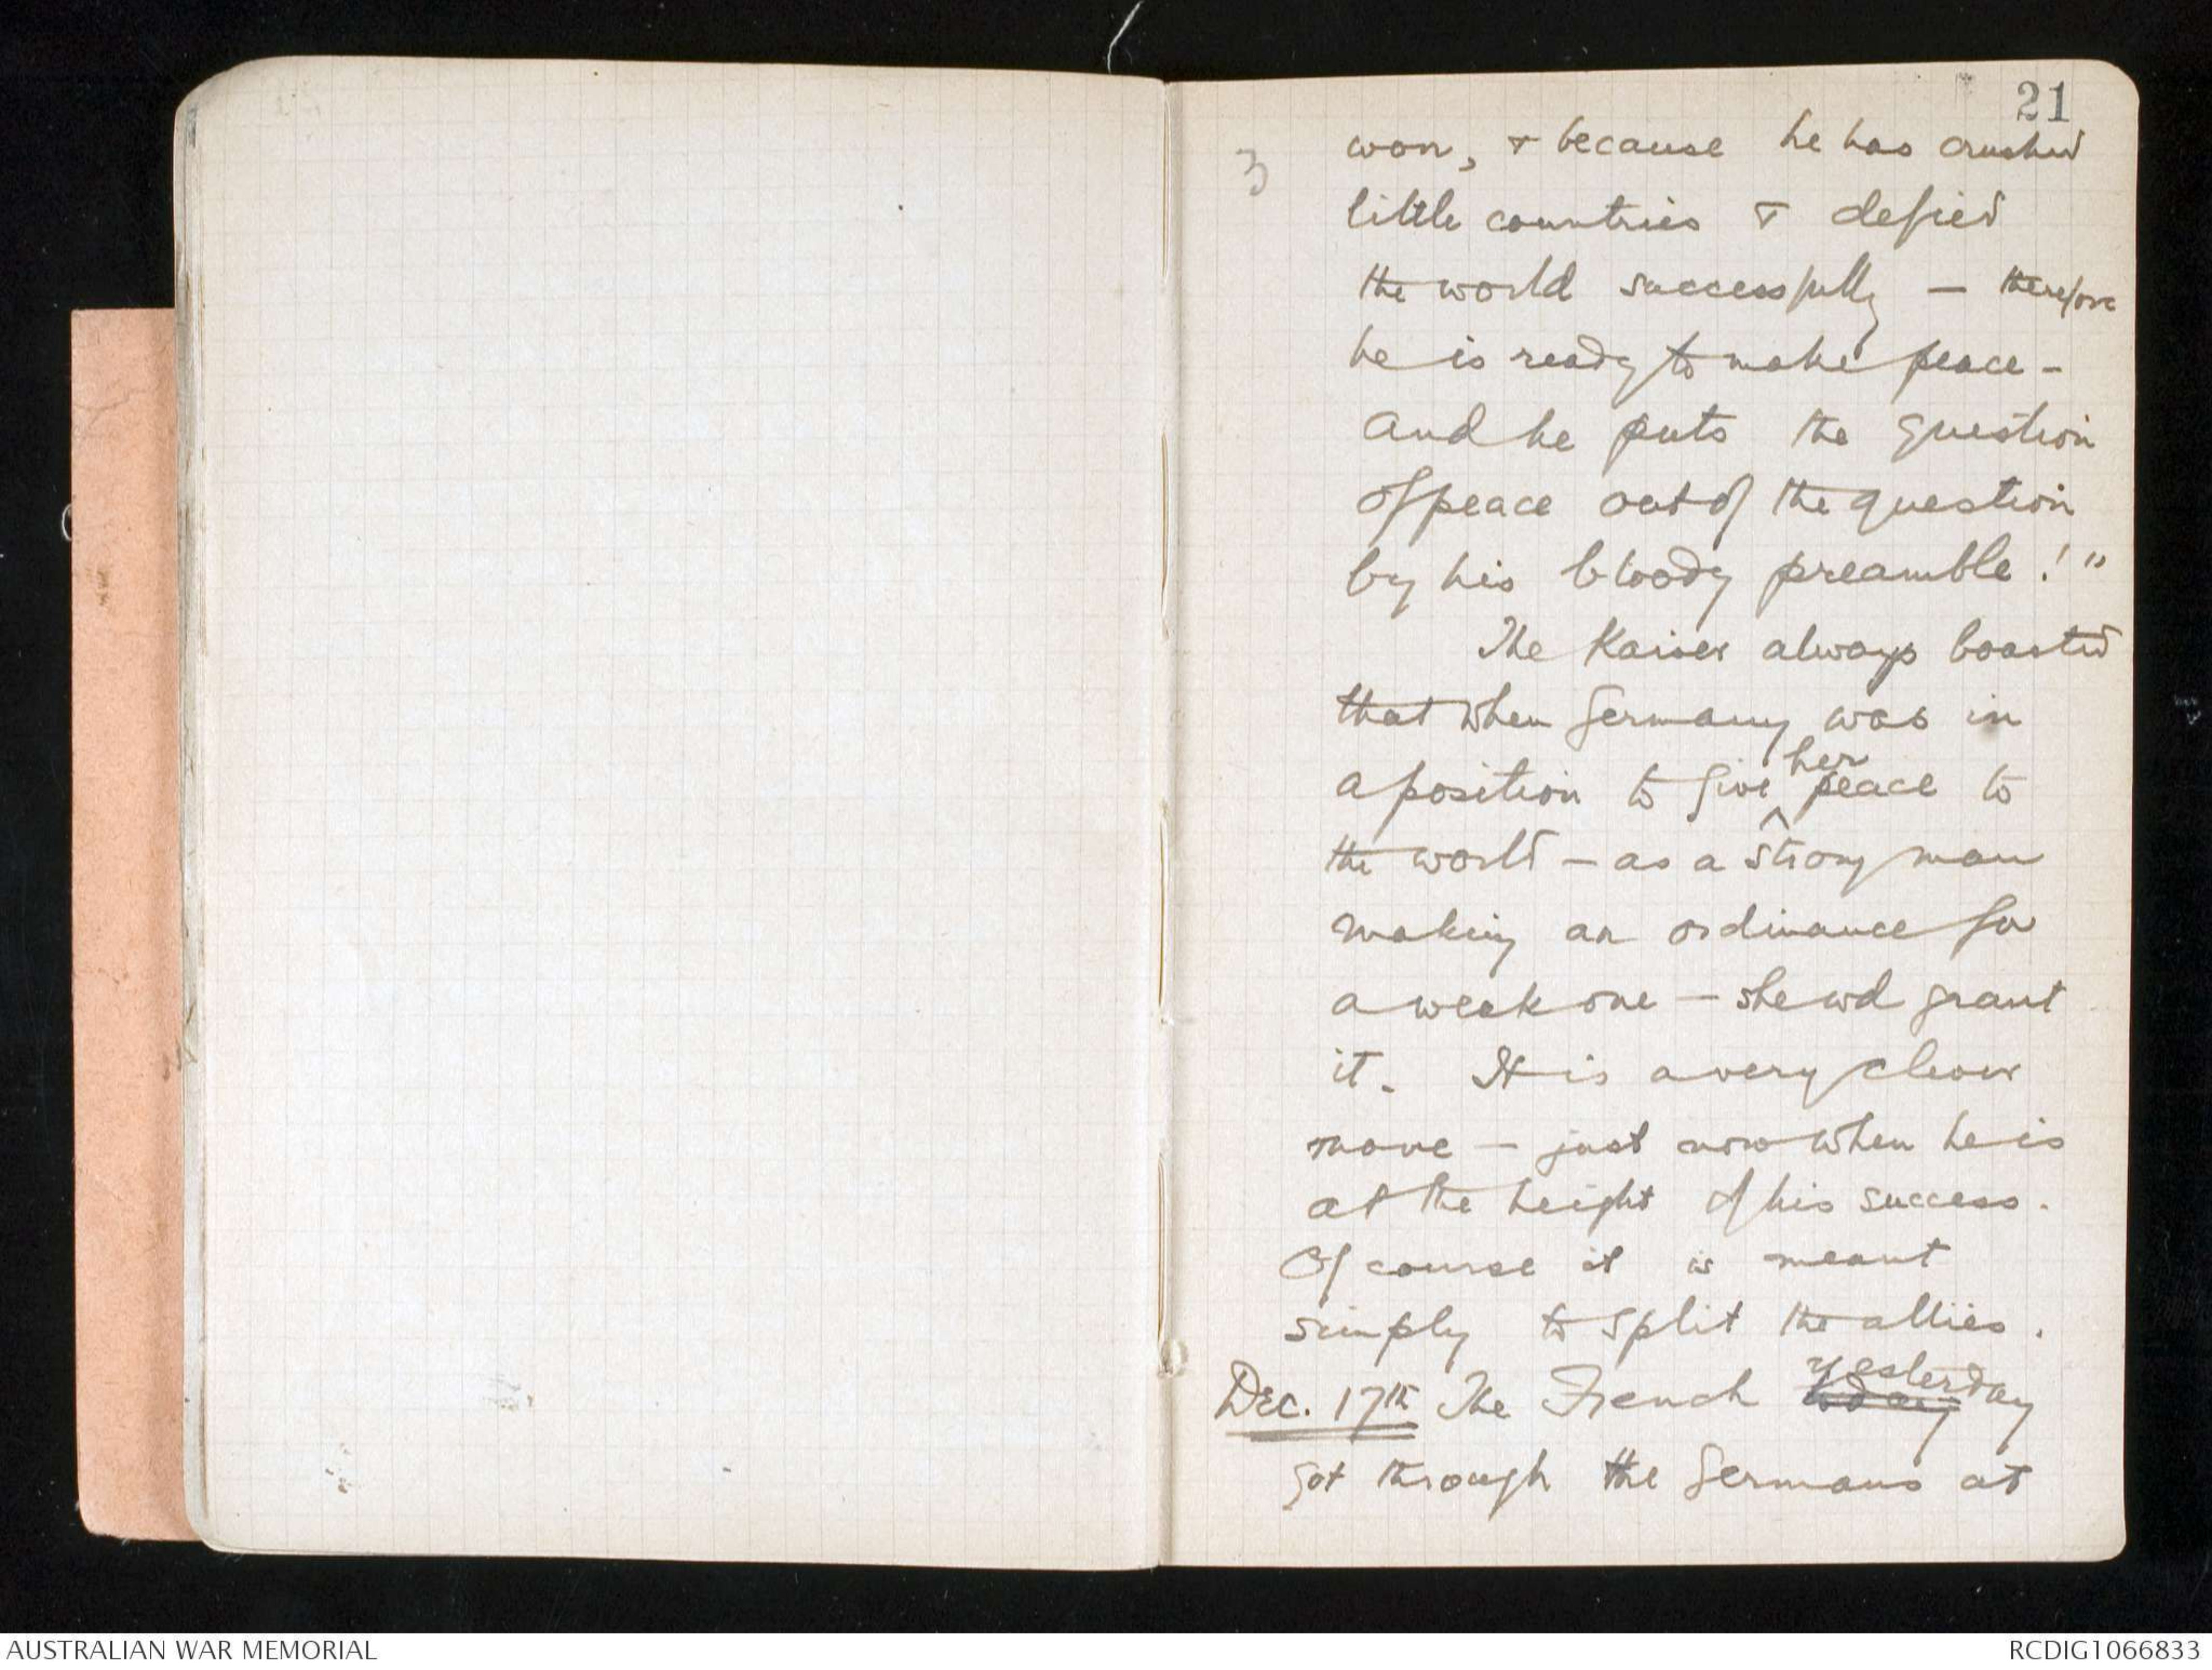 21
3
won, & because he has crushed
little countries & defied
the world successfully — therefore
he is ready to make peace -
And he puts the question
of peace out of the question
by his bloody preamble!"
The Kaiser always boasted
that when Germany was in
a position to give her peace to
the world - as a strong man
making an ordinance for
a weak one — she wd grant
it. It is a very clever
move - just now when he is
at the height of his success.
Of course it is meant
simply to split the allies.
Dec. 17th The French today yesterday
got through the Germans at
AUSTRALIAN WAR MEMORIAL
RCDIG1066833